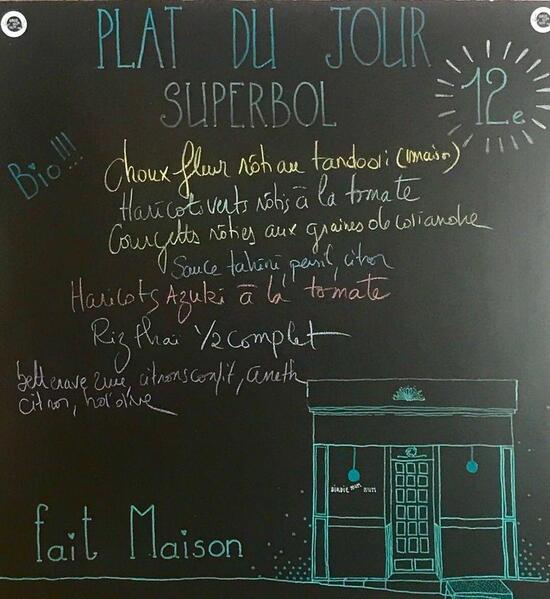 PLAT DU JOUR
SUPERBOL
12e
Bio!!!
choux fleur rôti au tandoori (maison)
Haricots verts rôtis à la tomate
Courgettes rôties aux graines de coriandre
Sauce tahini, persil, citron
Haricots Azuki à la tomate
Riz thaï 1/2 complet
betterave crue, citrons confit, aneth
citron, huil'olive
fait Maison